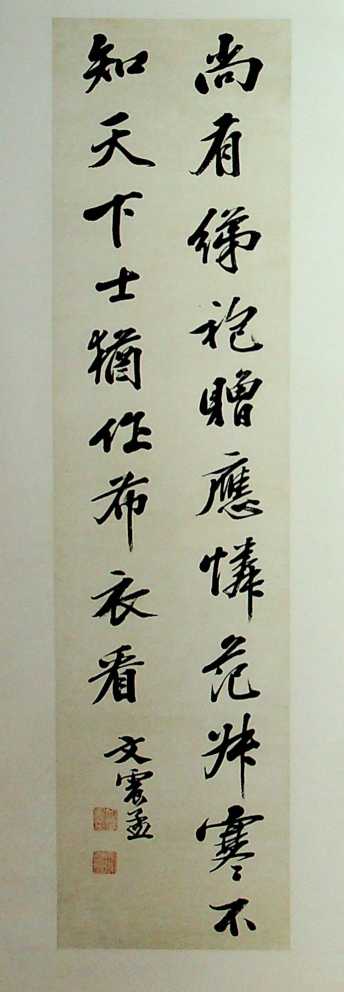 尚有綈袍贈應憐范叔寒不
知天下士猶作布衣看
文震孟